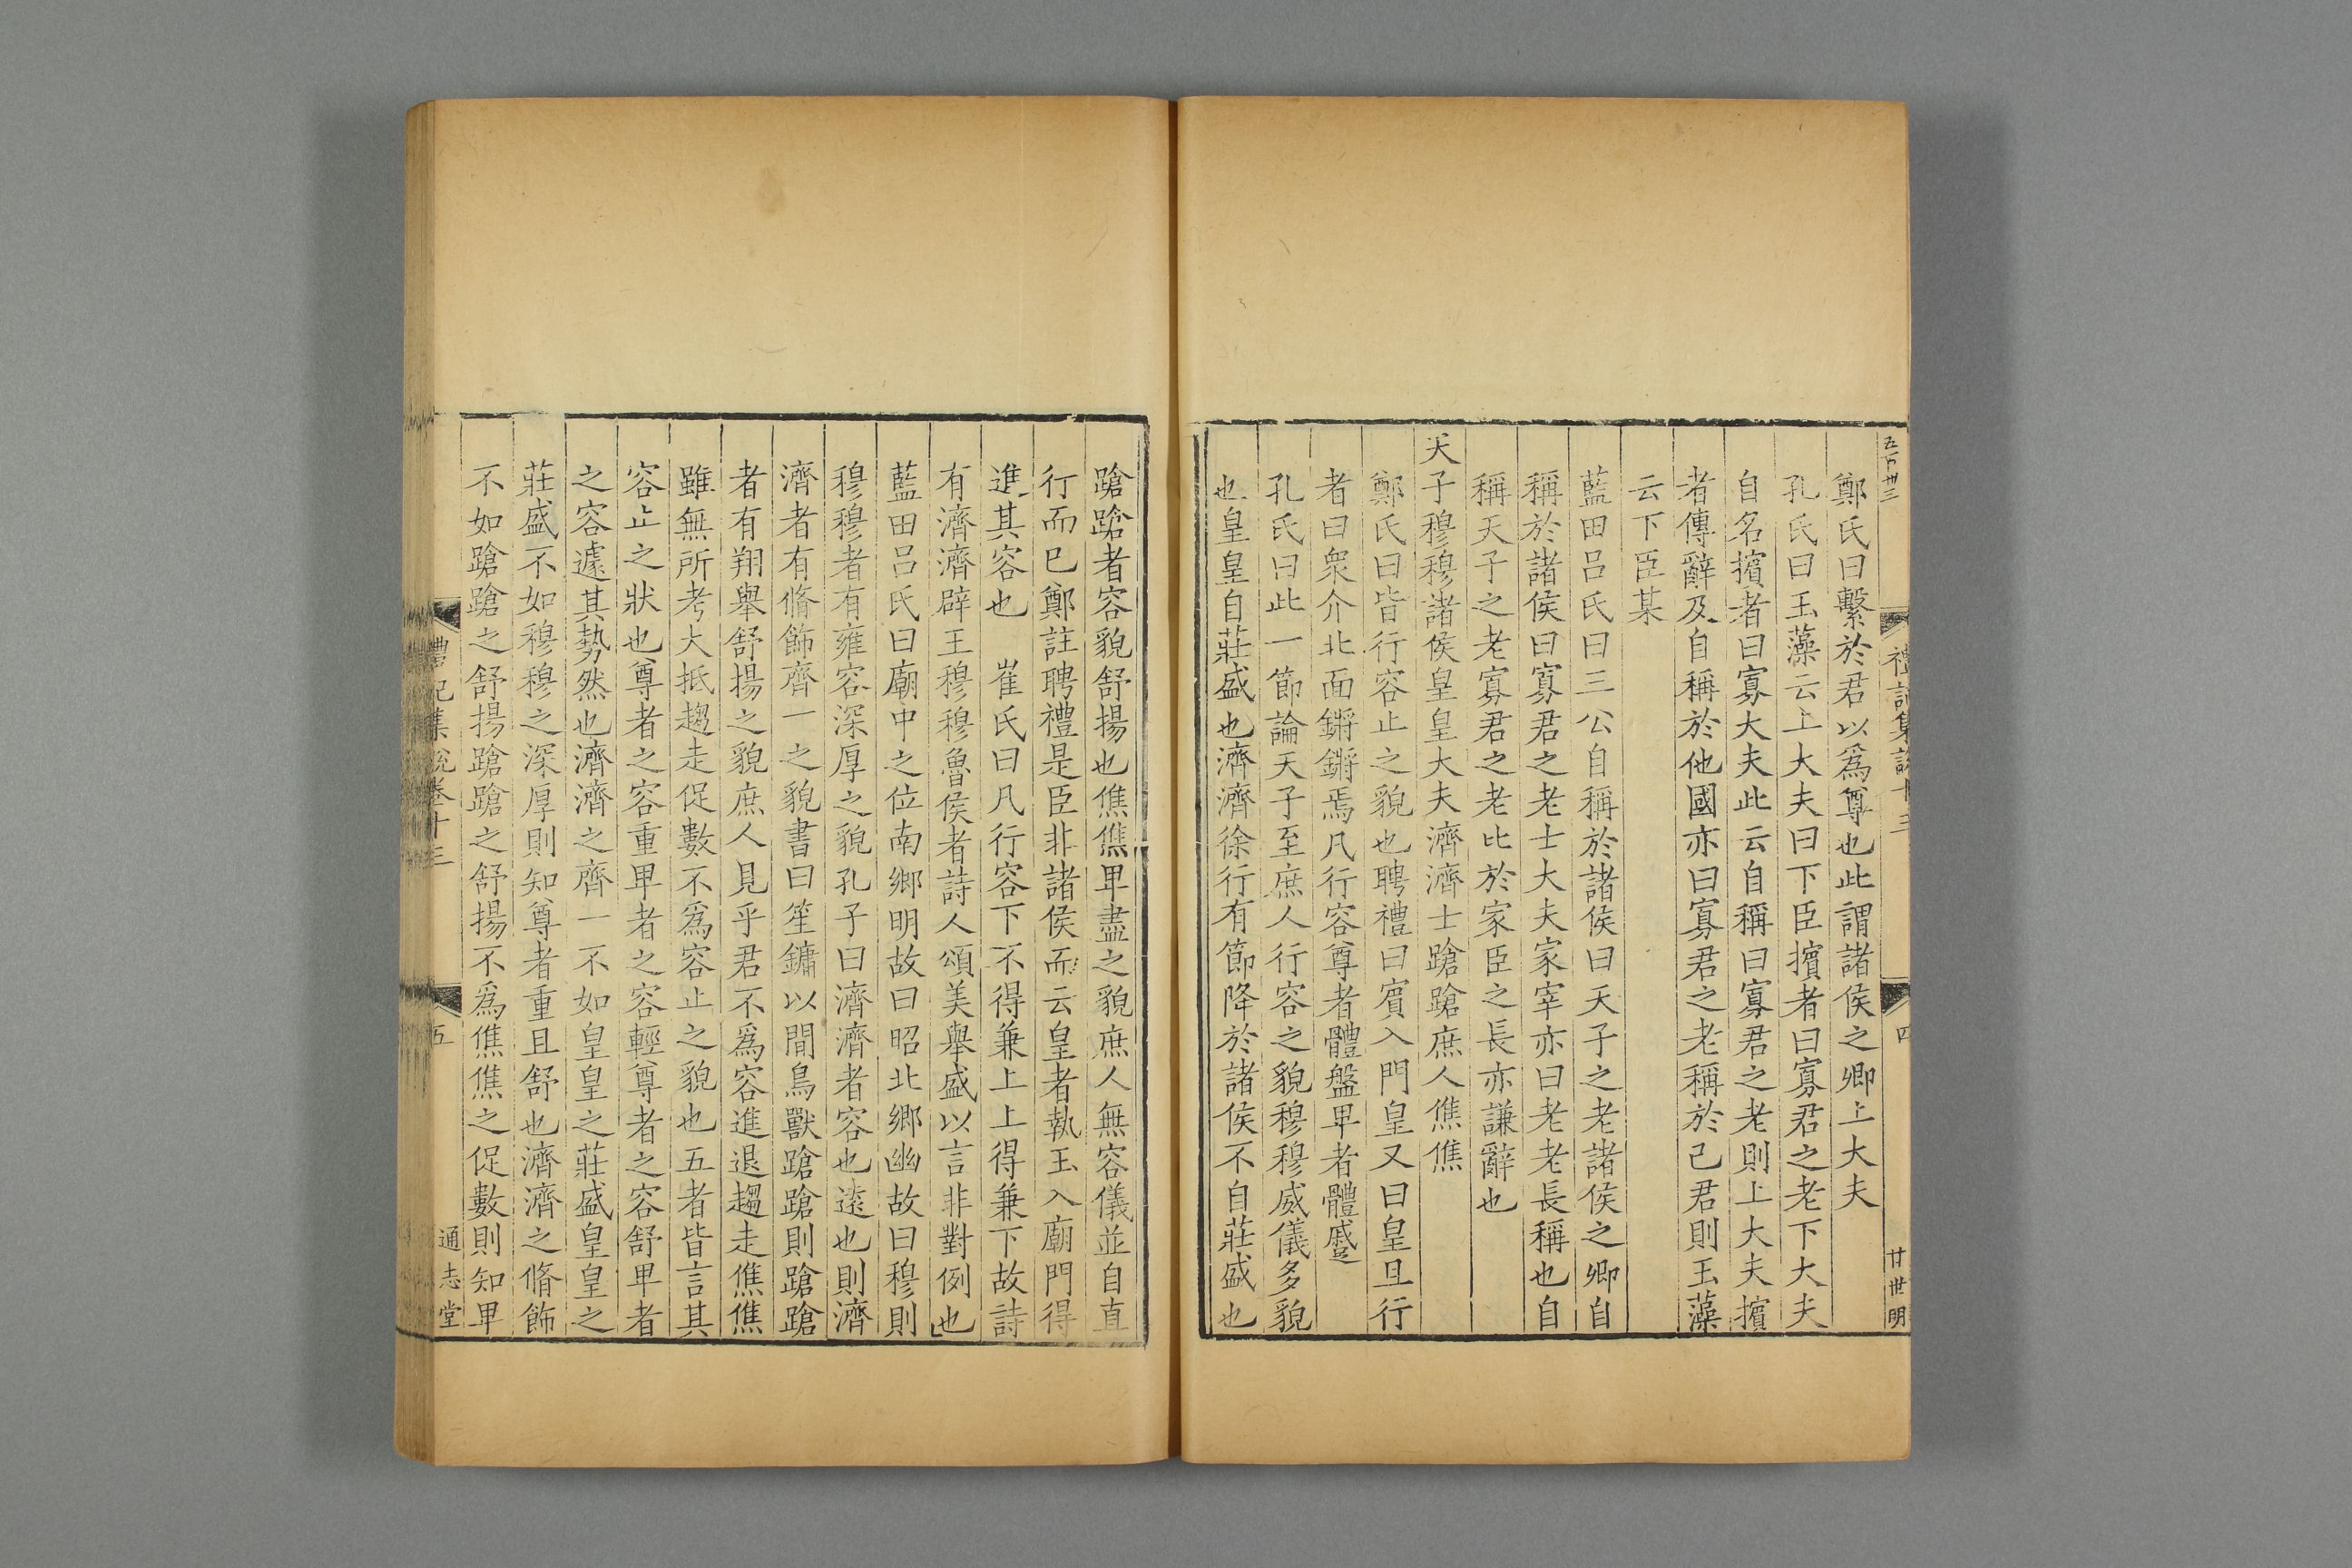 五百卅三
禮記集說十三
四
廿世明
鄭氏曰繫於君以爲尊也此謂諸侯之卿上大夫
孔氏曰玉藻云上大夫曰下臣擯者曰寡君之老下大夫
自名擯者曰寡大夫此云自稱曰寡君之老則上大夫擯
者傳辭及自稱於他國亦曰寡君之老稱於己君則玉藻
云下臣某
藍田呂氏曰三公自稱於諸侯曰天子之老諸侯之卿自
稱於諸侯曰寡君之老士大夫家宰亦曰老老長稱也自
稱天子之老寡君之老比於家臣之長亦謙辭也
天子穆穆諸侯皇皇大夫濟濟士蹌蹌庶人僬僬
鄭氏曰皆行容止之貌也聘禮曰賔入門皇又曰皇且行
者曰衆介北面鏘鏘焉凡行容尊者體盤卑者體蹙
孔氏曰此一節論天子至庶人行容之貌穆穆威儀多貌
也皇皇自莊盛也濟濟徐行有節降於諸侯不自莊盛也
蹌蹌者容貌舒揚也僬僬卑盡之貌庶人無容儀並自直
行而已鄭註聘禮是臣非諸侯而云皇者執玉入廟門得
進其容也 崔氏曰凡行容下不得兼上上得兼下故詩
有濟濟辟王穆穆魯侯者詩人頌美舉盛以言非對例也
藍田呂氏曰廟中之位南鄉明故曰昭北鄉幽故曰穆則
穆穆者有雍容深厚之貌孔子曰濟濟者容也遠也則濟
濟者有脩飾齊一之貌書曰笙鏞以間鳥獸蹌蹌則蹌蹌
者有翔舉舒揚之貌庶人見乎君不爲容進退趨走僬僬
雖無所考大抵趨走促數不爲容止之貌也五者皆言其
容止之狀也尊者之容重卑者之容輕尊者之容舒卑者
之容遽其勢然也濟濟之齊一不如皇皇之莊盛皇皇之
莊盛不如穆穆之深厚則知尊者重且舒也濟濟之脩飾
不如蹌蹌之舒揚蹌蹌之舒揚不爲僬僬之促數則知卑
禮記集說卷十三
五
通志堂